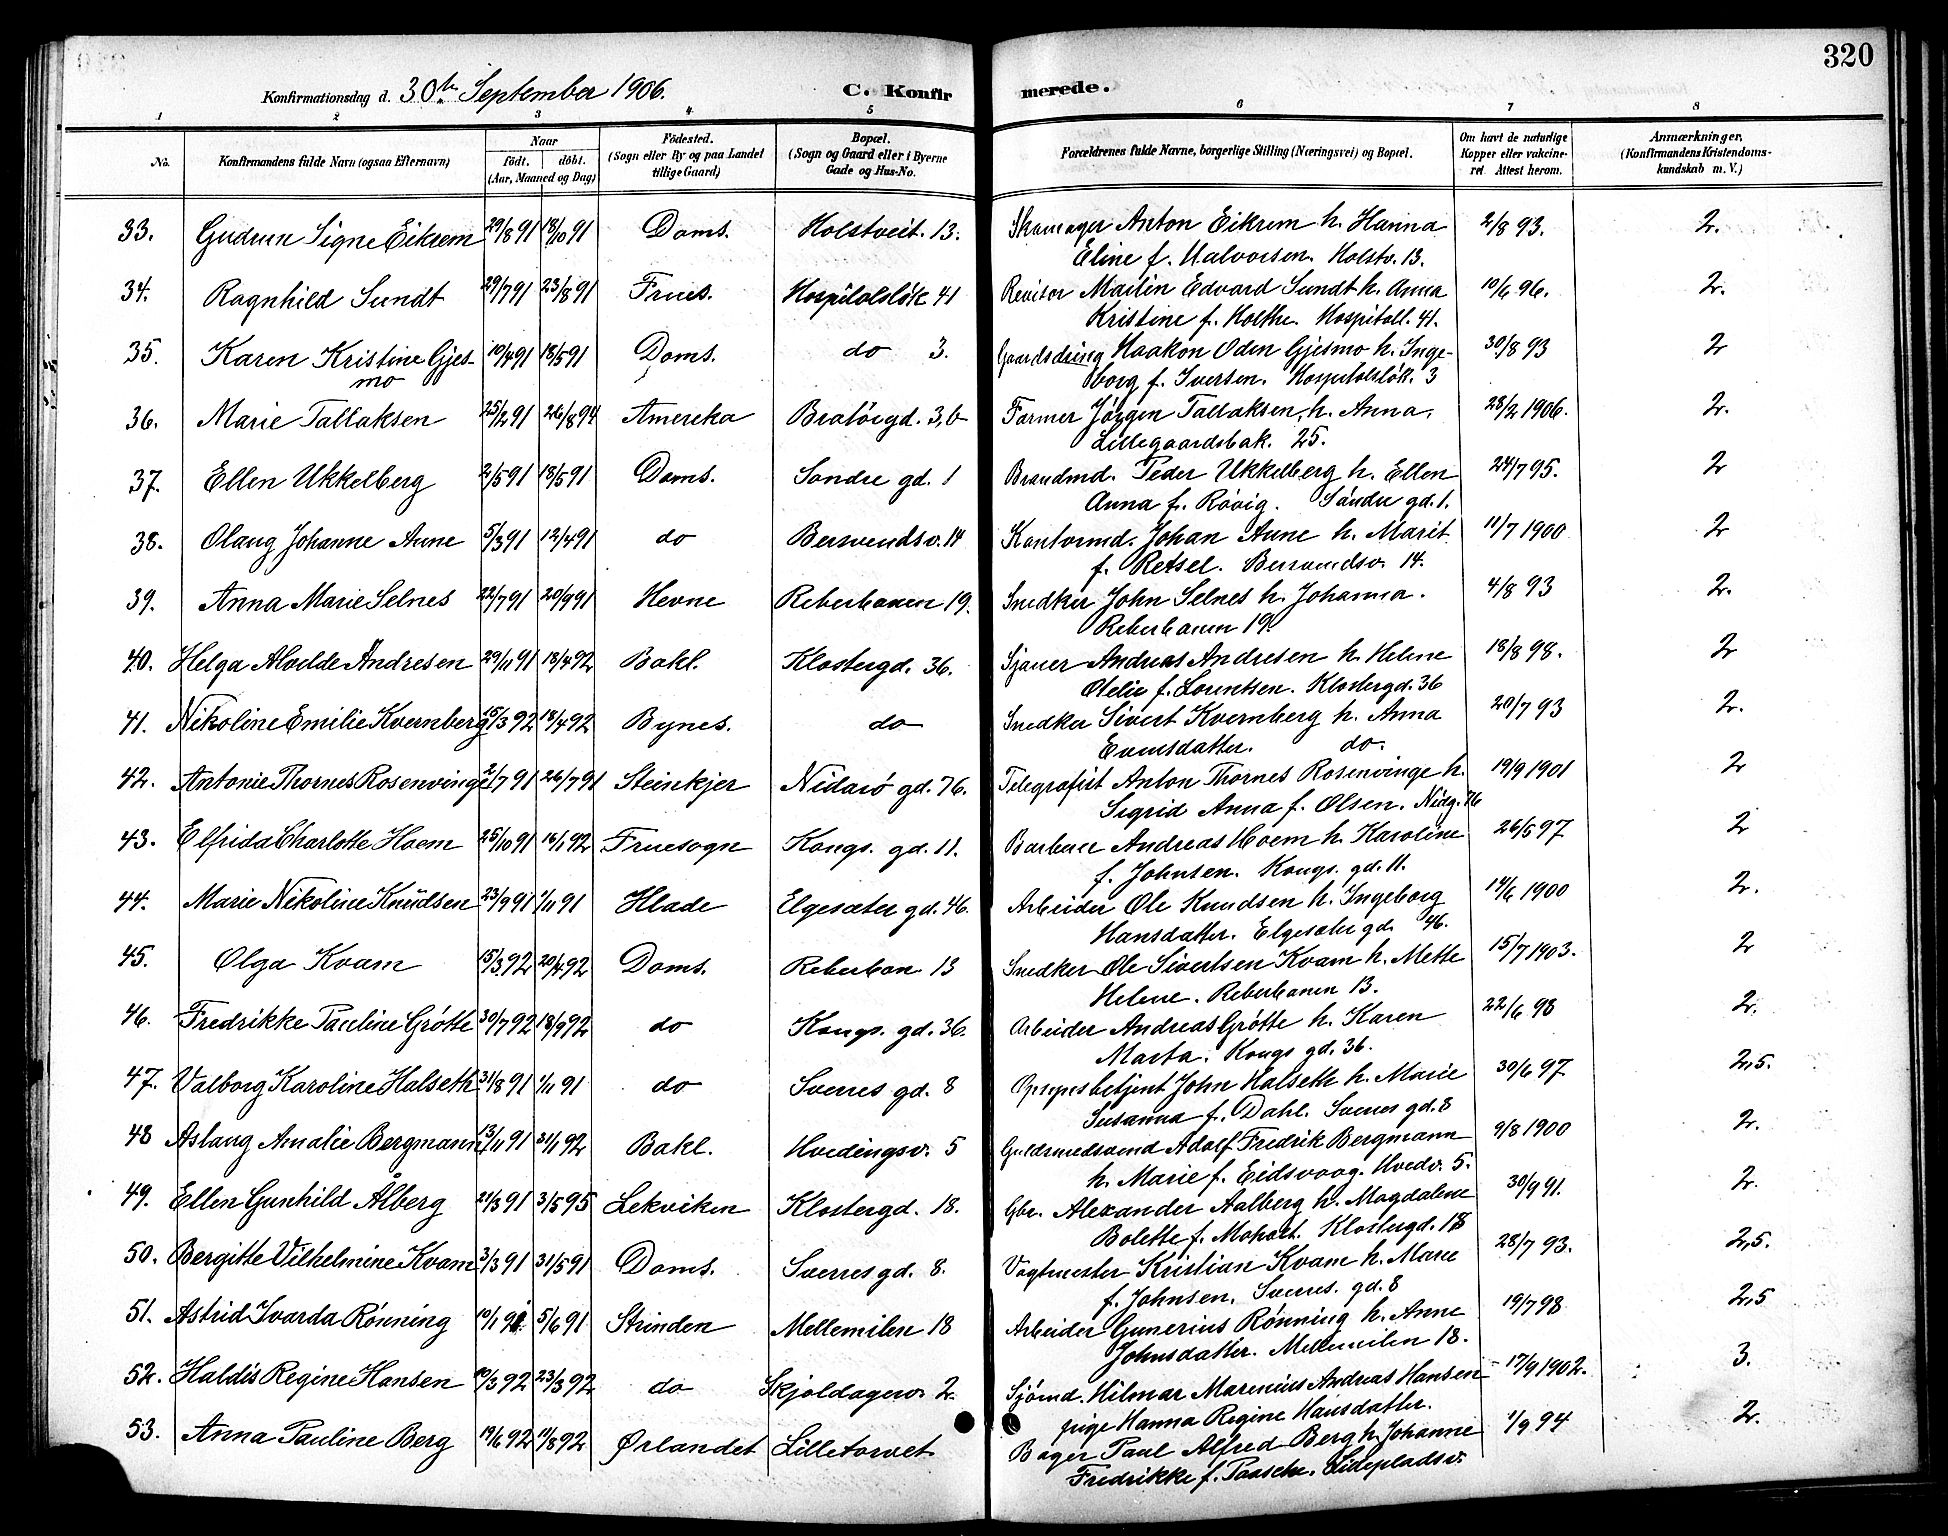 320
Konfirmationsdag d. 30te September 1906. C. Konfirmerede.
1 2 3 4 5 6 7 8
No. Konfirmandens fulde Navn (ogsaa Efternavn) Naar födt. döbt. (Aar, Maaned og Dag) Födested. (Sogn eller By og paa Landet tillige Gaard) Bopæl. (Sogn og Gaard eller i Byerne Gade og Hus-No. Forældrenes fulde Navne, borgerlige Stilling (Næringsvei) og Bopæl. Om havt de naturlige Kopper eller vakcineret. Attest herom. Anmærkninger, (Konfirmandens Kristendomskundskab m. V.)
33. Gudrun Signe Eikrem 29/8 91 18/10 91 Doms. Holstveit. 13. Skomager Anton Eikrem h. Hanna 2/8 93. 2.
Eline f. Halvorsen. Holstv. 13.
34. Ragnhild Sundt 29/7 91 23/8 91 Frues. Hospitalsløk 41 Revisor Martin Edvard Sundt h. Anna 10/6 96. 2.
Kristine f. Holthe. Hospitall. 41.
35. Karen Kristine Gjes- 10/4 91 18/5 91 Doms. do 3. Gaardsdreng Haakon Oden Gjesmo h. Inge- 30/8 93 2
mo borg f. Iversen. Hospitalsløk. 3
36. Marie Tallaksen 25/2 91 26/8 94 Amerika Bratörgd. 3,b Farmer Jörgen Tallaksen, h. Anna, 28/2 1906. 2.
Lillegaardsbak. 25.
37. Ellen Ukkelberg 2/5 91 18/5 91 Doms. Sondre gd. 1 Brandmd. Peder Ukkelberg h. Ellen 24/7 95. 2
Anna f. Rövig. Söndre gd. 1.
38. Olaug Johanne Aune 5/3 91 12/4 91 do Bersvendsv. 14 Kontormd. Johan Aune h. Marit 11/7 1900 2
f. Retsel. Bersvendsv. 14.
39. Anna Marie Selnes 22/7 91 20/9 91 Hevne Reberbanen 19. Snedker John Selnes h. Johanna. 4/8 93 2.
Reberbanen 19.
40. Helga Alvilde Andresen 29/11 91 18/4 92 Bakl. Klostergd. 36. Sjauer Andreas Andresen h. Helene 18/8 98. 2
Otelie f. Lorentsen. Klostergd. 36
41. Nikoline Emilie Kvernberg 15/3 92 18/4 92 Bynes. do Snedker Sivert Kvernberg h. Anna 20/7 93 2.
Evensdatter. do.
42. Antonie Thornes Rosenvinge 2/7 91 26/7 91 Steinkjer Nidarö gd. 76. Telegrafist Anton Thornes Rosenvinge h. 19/9 1901 2
Sigrid Anna f. Olsen. Nidg. 76
43. Elfrida Charlotte Hoem 25/10 91 16/1 92 Fruesogn Kongs. gd. 11. Barberer Andreas Hoem h. Karoline 26/5 97 2
f. Johnsen. Kongs. gd. 11.
44. Marie Nikoline Knudsen 23/9 91 1/11 91 Hlade Elgesæter gd. 46. Arbeider Ole Knudsen h. Ingeborg 14/6 1900 2.
Hansdatter. Elgesæter gd. 46.
45. Olga Kvam 15/3 92 20/4 92 Doms. Reberban 13 Snedker Ole Sivertsen Kvam h. Mette 15/7 1903. 2
Helene. Reberbanen 13.
46. Fredrikke Pauline Grötte 30/7 92 18/9 92 do Kongs. gd. 36. Arbeider Andreas Grötte h. Karen 22/6 98 2.
Marta. Kongs gd. 36.
47. Valborg Karoline Halseth 31/8 91 1/11 91 do Sverres gd. 8 Opsynsbetjent John Halseth h. Marie 30/6 97 2,5.
Susanna f. Dahl. Sverres gd. 8
48 Aslaug Amalie Bergmann 13/11 91 31/1 92 Bakl. Hvedingsv. 5 Guldsmedsvend Adolf Fredrik Bergmann 9/8 1900 2.
h. Marie f. Eidsvaag. Hvedv. 5.
49. Ellen Gunhild Alberg 21/3 91 3/5 95 Lekviken Klostergd. 18. Gbr. Alexander Aalberg h. Magdalene 30/9 91. 2.
Bolette f. Moholt. Klostergd. 18
50. Bergitte Vilhelmine Kvam 3/3 91 31/5 91 Doms. Sverres gd. 8. Vagtmester Kristian Kvam h. Marie 28/7 93. 2,5.
f. Johnsen. Sverres. gd. 8
51. Astrid Ivarda Rönning 10/1 91. 5/6 91 Strinden Mellemilen 18 Arbeider Gunerius Rönning h. Anne 19/7 98 2,5
Johnsdatter. Mellemilen 18.
52. Haldis Regine Hansen 10/3 92 23/3 92 do Skjoldagerv. 2. Sjömd. Hilmar Marenius Andreas Hansen 17/9 1902. 3.
pige Hanna Regine Hansdatter.
53. Anna Pauline Berg 19/6 92 11/8 92 Ørlandet Lilletorvet Bager Paul Alfred Berg h. Johanne 1/9 94 2.
Fredrikke f. Paasche. Sidepladsv.